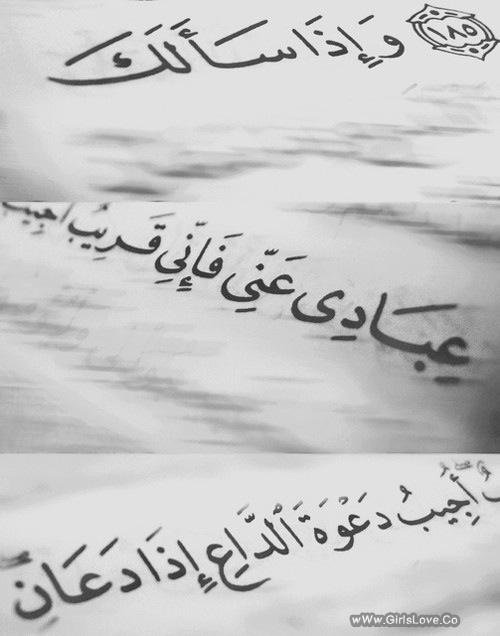 ١٨٥ وَإِذَا سَأَلَكَ
عِبَادِى عَنِّي فَإِنِّي قَرِيبٌ أُجِيبُ
أُجِيبُ دَعْوَةَ ٱلدَّاعِ إِذَا دَعَانِ
wWw.GirlsLove.Co